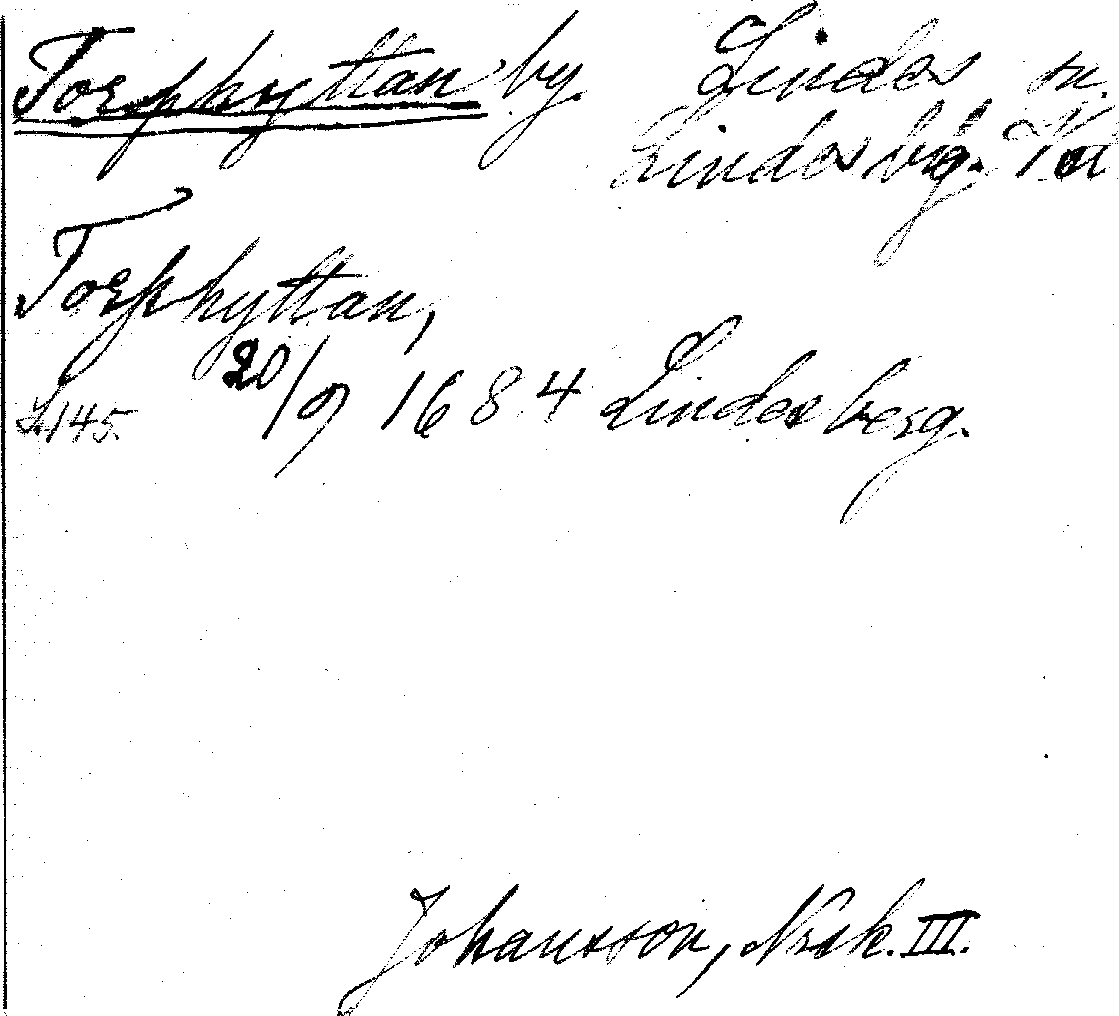 Torphyttan by Lindes sn.
Lindesbgs
Torphyttan,
20/9 1684 Lindesberg.
L.145.
Johansson, Nsk. III.